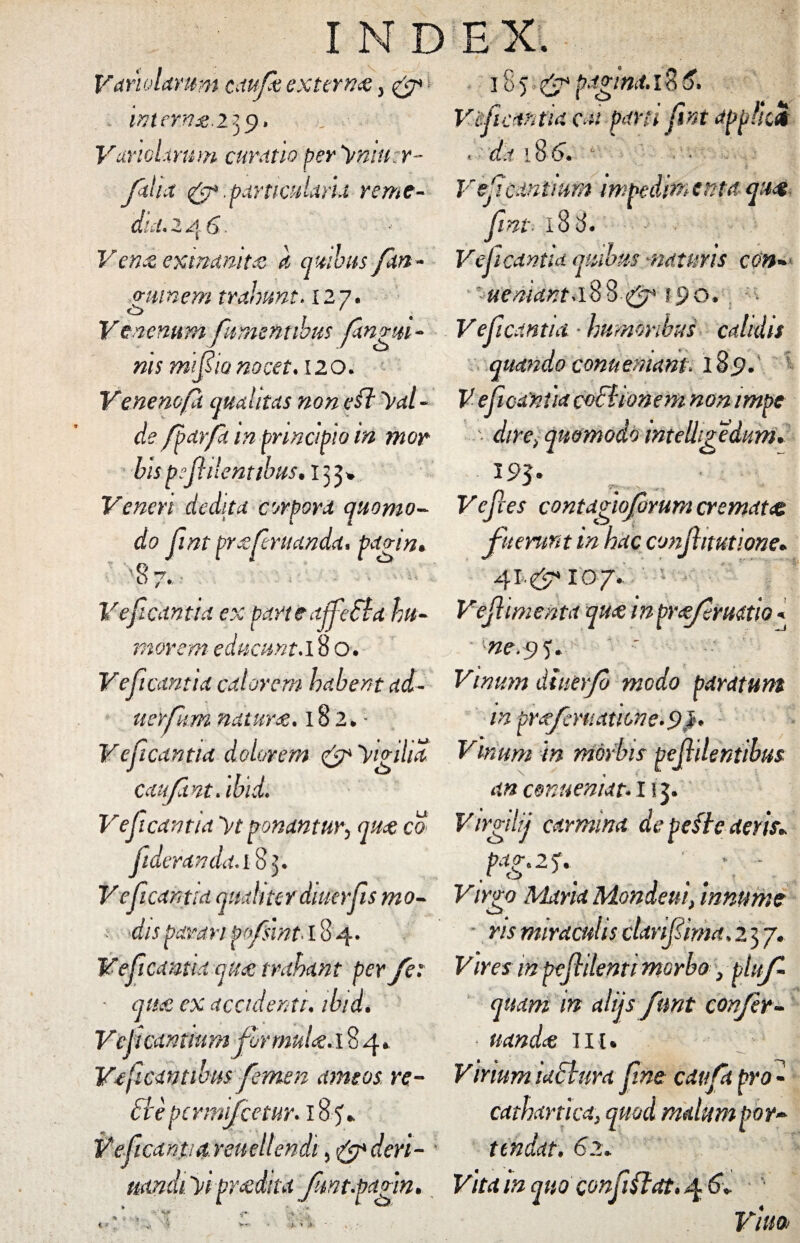 INDEX.
Variolarum cauſæ externæ, &
internæ.239.
Variolarum curatio per vniuer-
ſalia & particularia reme-
dia.246.
Venæ exinanitæ à quibus ſan-
guinem trahunt. 127.
Venenum fumentibus ſangui-
nis miſsio nocet. 120.
Venenoſa qualitas non eſt val-
de ſparſa in principio in mor
bis peſtilentibus. 133.
Veneri dedita corpora quomo-
do ſint præſeruanda. pagin.
87.
Veſicantia ex parte affecta hu-
morem educunt.180.
Veſicantia calorem habent ad-
uerſum naturæ. 182.
Veſicantia dolorem & vigiliā
cauſant. ibid.
Veſicantia vt ponantur, quæ cō
ſideranda.183.
Veſicantia qualiter diuerſis mo-
dis parari poſsint.184.
Veſicantia quæ trahant per ſe:
quæ ex accidenti. ibid.
Veſicantium formulæ.184.
Veſicantibus ſemen ameos re-
ctè permiſcetur. 185.
Veſicantia reuellendi, & deri-
uandi vi prædita ſunt.pagin.
185 & pagina.186.
Veſicantia cui parti ſint applicā
da 186.
Veſicantium impedimenta quæ
ſint. 188.
Veſicantia quibus naturis con-
ueniant.188 & 190.
Veſicantia humoribus calidis
quando conueniant. 189.
Veſicantia coctionem non impe
dire, quomodo intelligēdum.
193.
Veſtes contagioſorum crematæ
fuerunt in hac conſtitutione.
41.& 107.
Veſtimenta quæ in præſeruatio-
ne.95.
Vinum diuerſo modo paratum
in præſeruatione.93.
Vinum in morbis peſtilentibus
an conueniat. 113.
Virgilij carmina de peſte aeris.
pag.25.
Virgo Maria Mondeui, innume
ris miraculis clariſsima. 237.
Vires in peſtilenti morbo, pluſ-
quam in alijs ſunt conſer-
uandæ 111.
Virium iactura ſine cauſa pro-
cathartica, quod malum por-
tendat. 62.
Vita in quo conſiſtat. 46.
Viuo